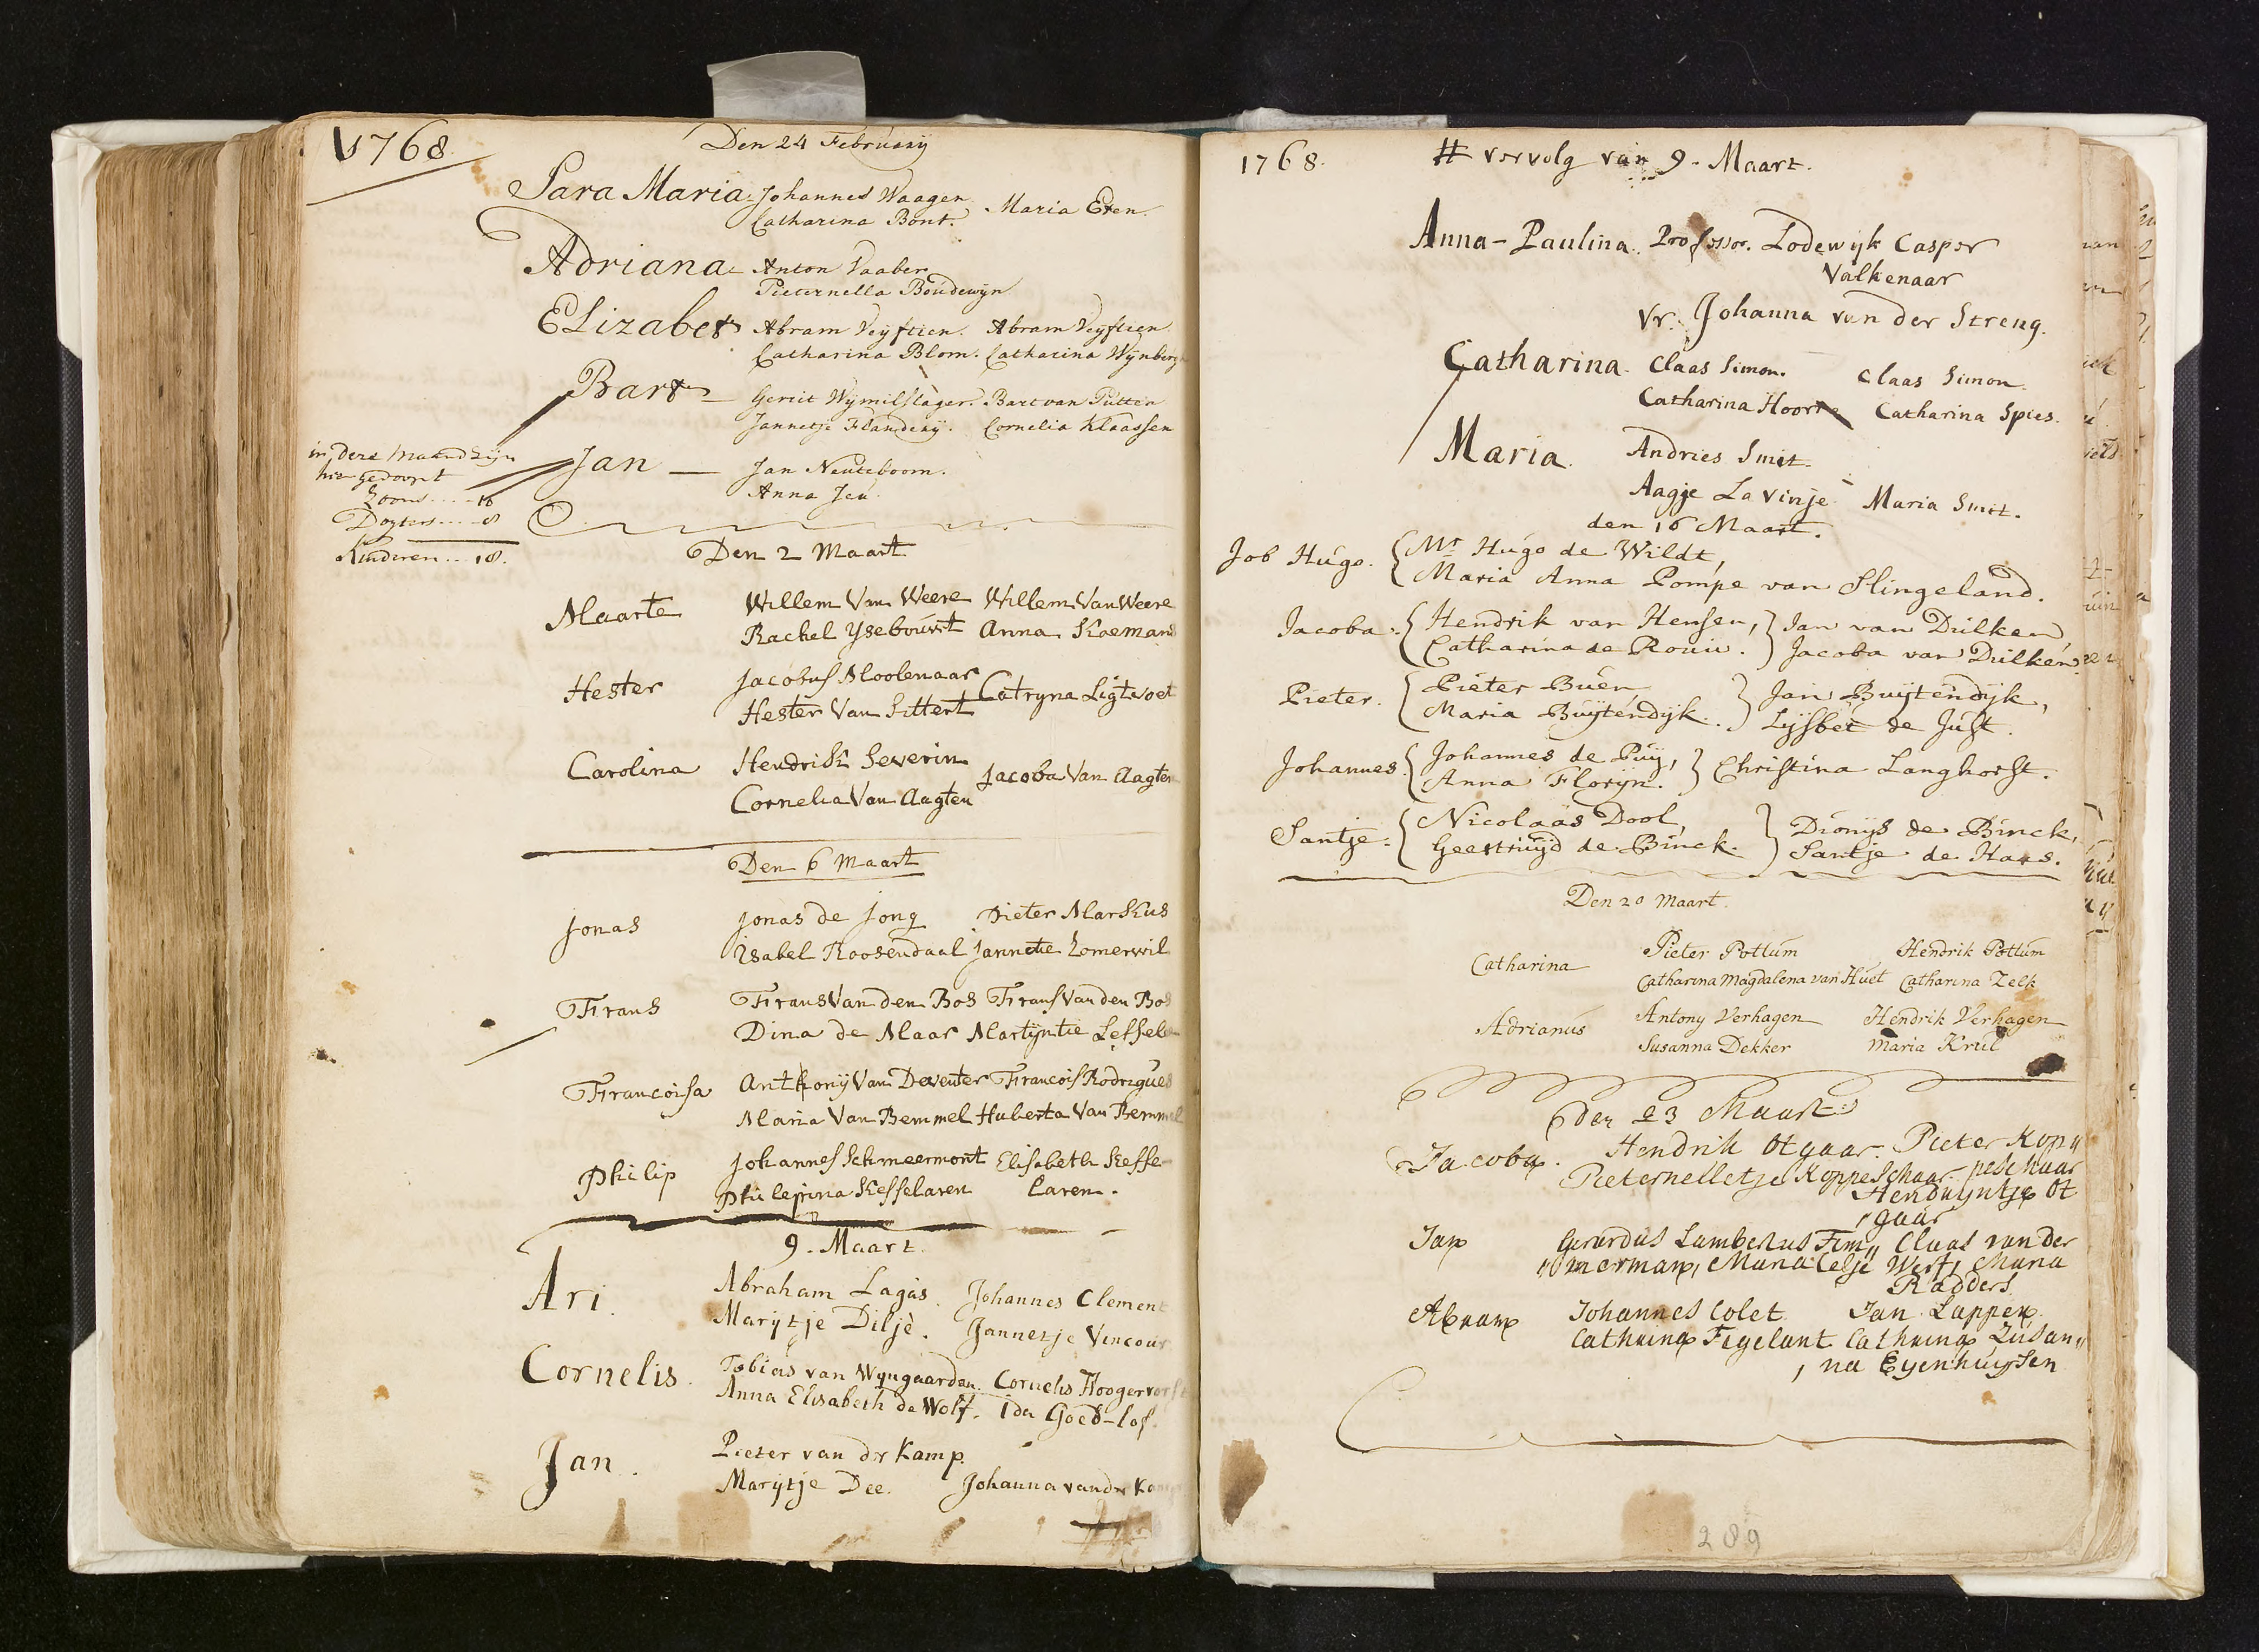 1768
Den 24 February
Sara Maria. Johannes Waagen Maria Exen.
Catharina Bont.
Adriana - Anton Vaaber
Pieternella Boudewijn
ELizabet Abram Veijftien. Abram Veijftien
Catharina Blom. Catharina Wijnbergh
Bart - Gerrit Wijmilslager. Bart van Putten
Jannetje Flanderij. Cornelia Klaassen
in deze Maand zijn
hier gedoopt
Zoons .... 10
Dogters .... 8
Kinderen .. 18.
Jan — Jan Neuteboom.
Anna Jeu
Den 2 Maart
Maarte Willem Van Weere Willem Van Weere
Rachel Ysebouwt Anna Koemans
Hester Jacobus Moolenaar Catryna Ligtvoet
Hester Van Sittert
Carolina Hendrik Severin Jacoba Van Aagten
Cornelia Van Aagten
Den 6 Maart
Jonas Jonas de Jong Pieter Markus
Isabel Roosendaal Jannetie Zomerwil
Frans Frans Van den Bos Frans Van den Bos
Dina de Maar Martijntie Leffele
Francoisa Anthonij Van Deventer Francois Rodrigues
Maria Van Bemmel Huberta Van Bemmel
Philip Johannes Schmeermont Elisabeth Keffe-
Philepina Kesselaren laren.
9. Maart
Ari. Abraham Lagas. Johannes Clement
Marijtje Diljé. Jannetje Vincour
Cornelis. Tobias van Wijngaarden. Cornelis Hoogervorst
Anna Elisabeth de Wolf. Ida Goed-lof.
Jan. Pieter van dr Kamp.
Marijtje Dee. Johanna van dr Kamp
1768. # vervolg van 9. Maart.
Anna-Paulina. Professor. Lodewijk Casper
Valkenaar
Vr. Johanna van der Streng.
Catharina. Claas Simon. Claas Simon.
Catharina Hoorn Catharina Spies.
Maria. Andries Smit.
Aagje Lavinje Maria Smit.
den 16 Maart.
Job Hugo. { Mr Hugo de Wildt,
Maria Anna Pompe van Slingeland.
Jacoba. { Hendrik van Hensen, } Jan van Dulken
Catharina de Rouw. } Jacoba van Dulken.
Pieter. { Pieter Buen } Jan Buijtendijk,
Maria Buijtendijk. } Lijsbet de Just.
Johannes. { Johannes de Puij, } Christina Langhorst.
Anna Florijn.
Santje. { Nicolaas Dool, } Dionijs de Binck,
Geertruijd de Binck. } Santje de Haas.
Den 20 Maart.
Catharina Pieter Pottum Hendrik Pottum
Catharina Magdalena van Huet Catharina Zelk
Adrianus Antony Verhagen Hendrik Verhagen
Susanna Dekker Maria Krul
den 23 Maart
Jacoba. Hendrik Otgaar. Pieter Kop„
Pieternelletje Koppeschaar peschaar
Hendrijntje Ot
gaar
Jan Gerardus Lambertus Tim„ Claas van der
„merman, Maria Celje Werf, Maria
Radders
Abram Johannes Colet Jan Lappen
Cathrina Fegelant Cathrina Zusan„
na Eyenhuysen
289